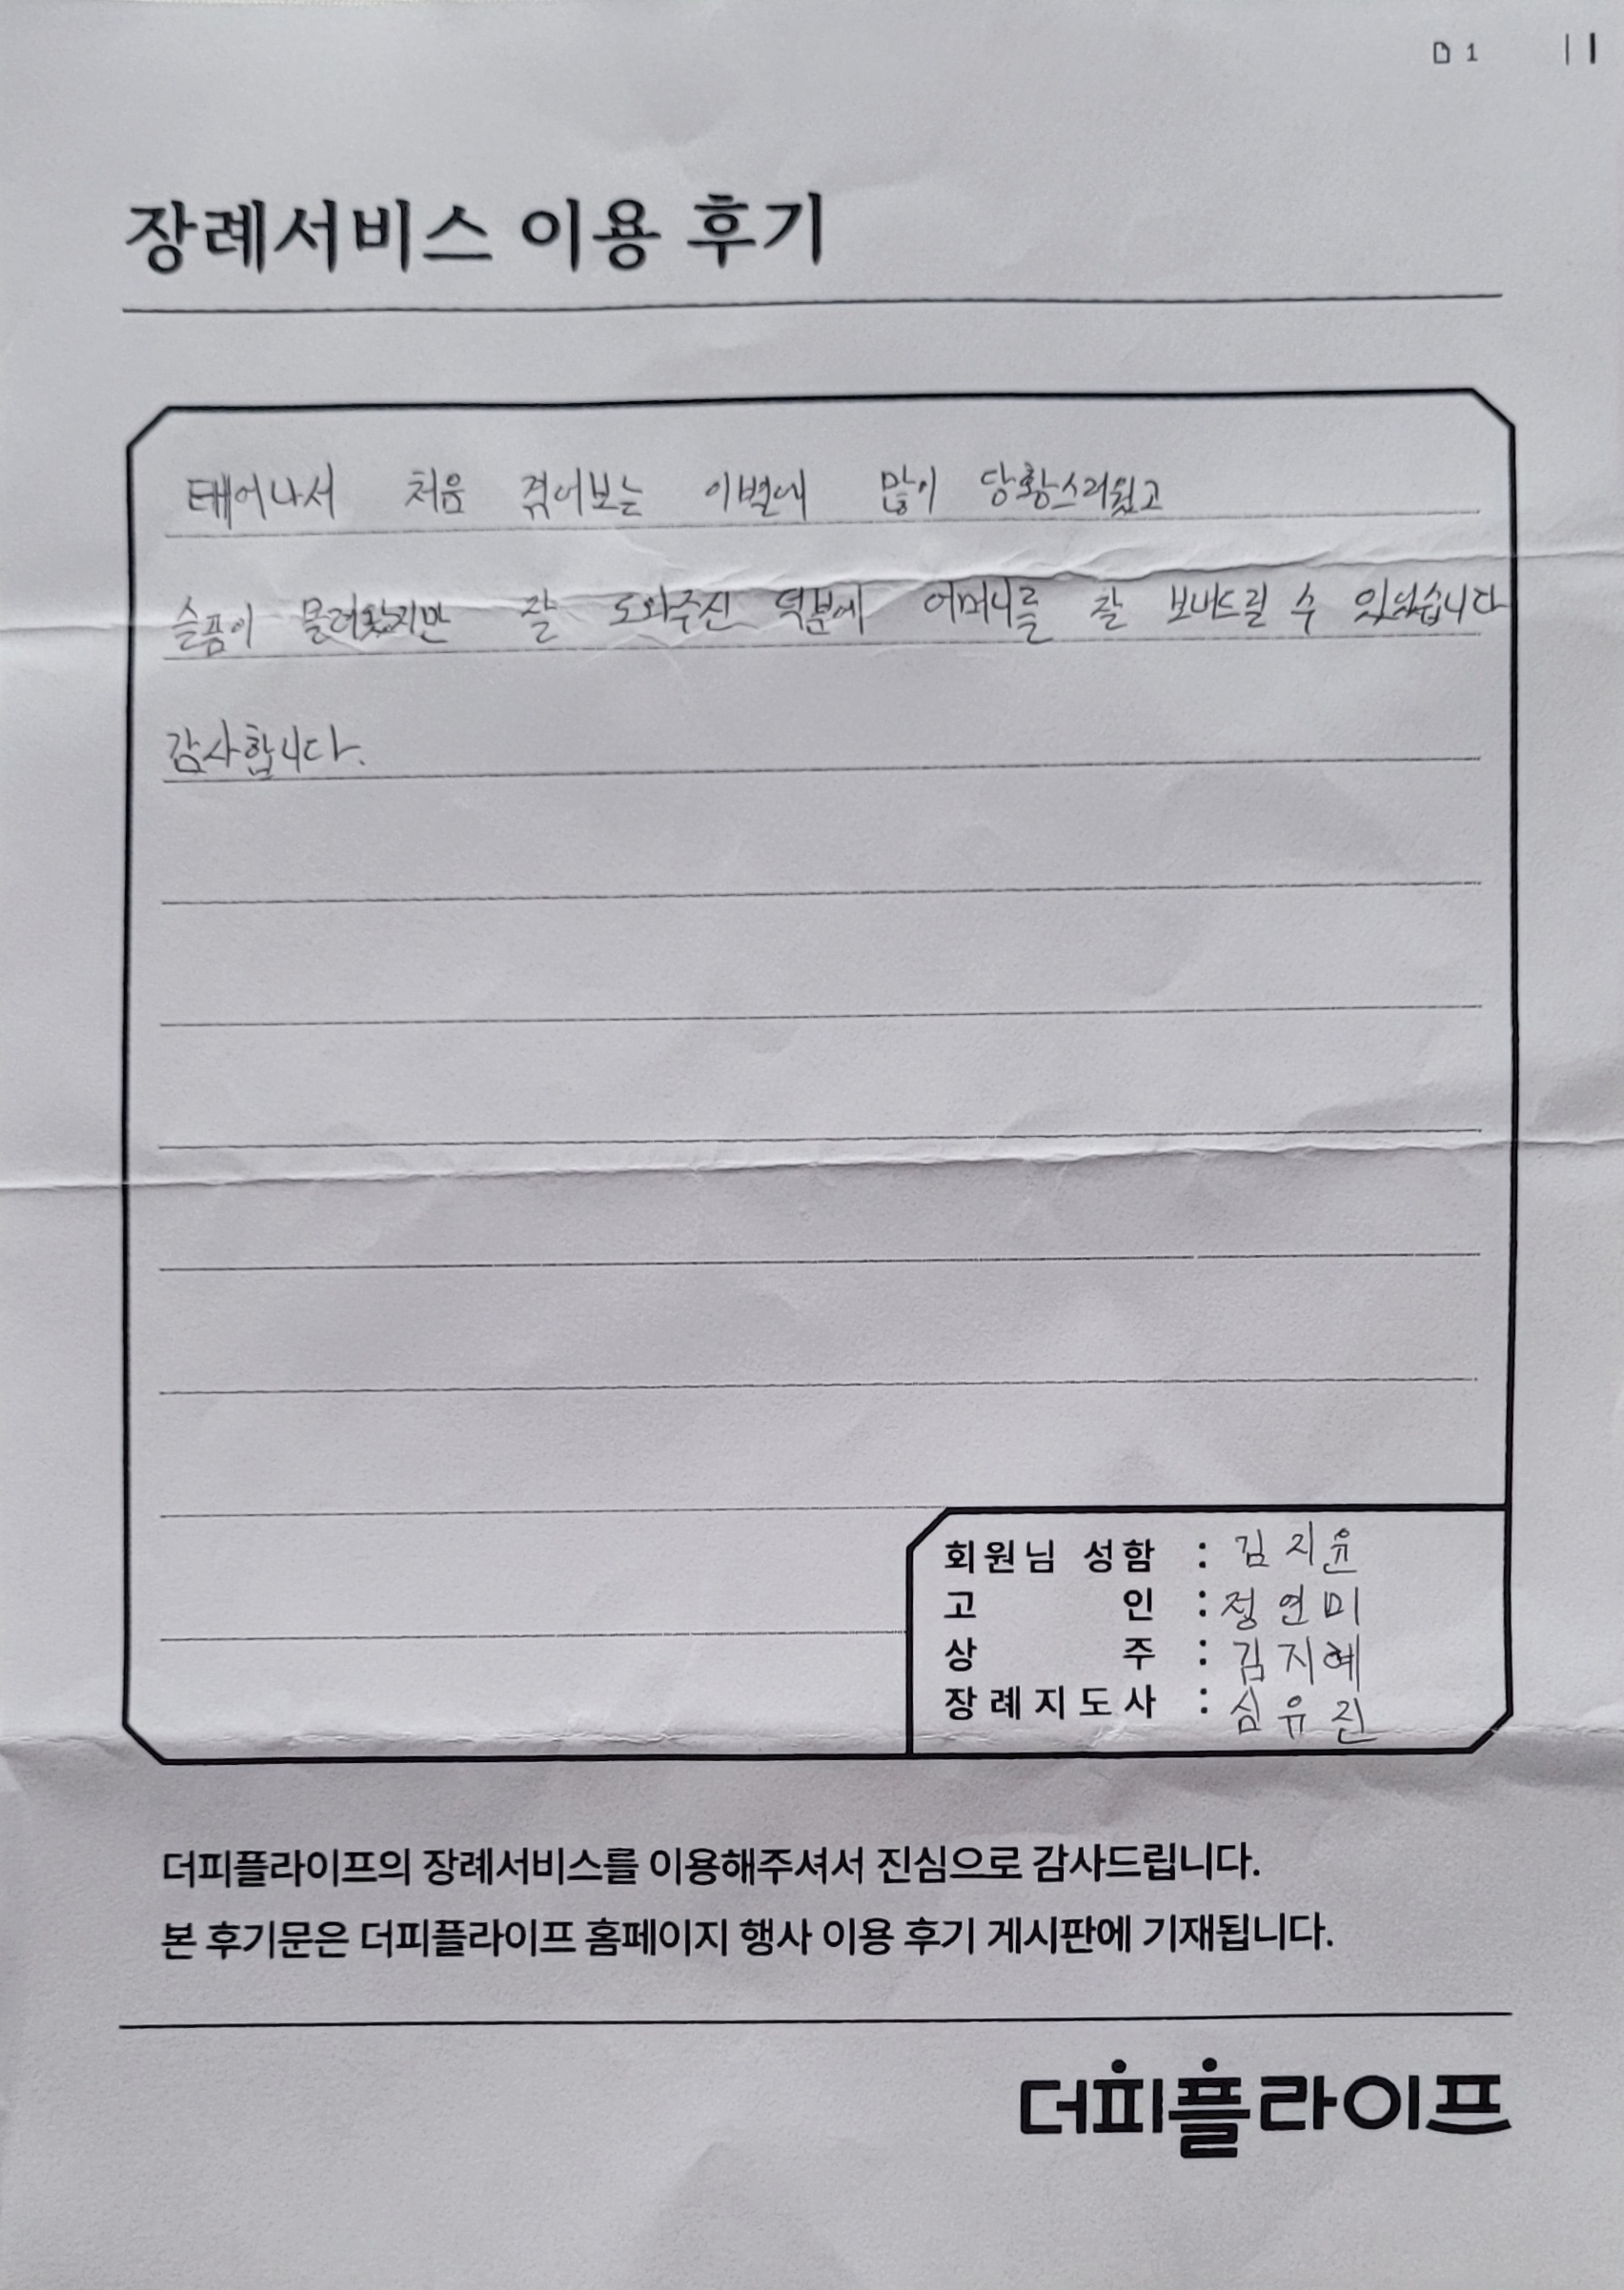 1
장례서비스 이용 후기
태어나서 처음 겪어보는 이별에 많이 당황스러웠고
슬픔이 몰려왔지만 잘 도와주신 덕분에 어머니를 잘 보내드릴 수 있었습니다
감사합니다.
회원님 성함 : 김지윤
고 인 : 정연미
상 주 : 김지혜
장례지도사 : 심유진
더피플라이프의 장례서비스를 이용해주셔서 진심으로 감사드립니다.
본 후기문은 더피플라이프 홈페이지 행사 이용 후기 게시판에 기재됩니다.
더피플라이프